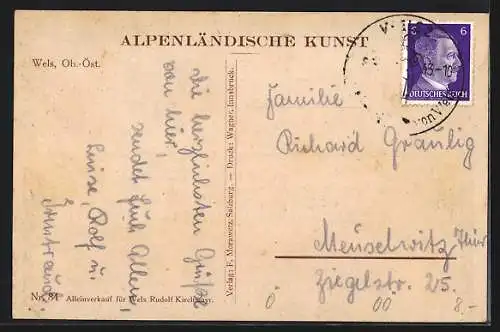 ALPENLÄNDISCHE KUNST
Wels, Ob.-Öst.
6 6
DEUTSCHES REICH
Die herzlichsten Grüße
von hier,
sendet Euch Allen,
Luise, Rolf u.
Familie
Richard Graulig
Meuselwitz Thür
Ziegelstr. 25.
Verlag: F. Morawetz, Salzburg. — Druck: Wagner, Innsbruck.
Nr. 81 Alleinverkauf für Wels Rudolf Kirchmayr.
Ö 00 8.-